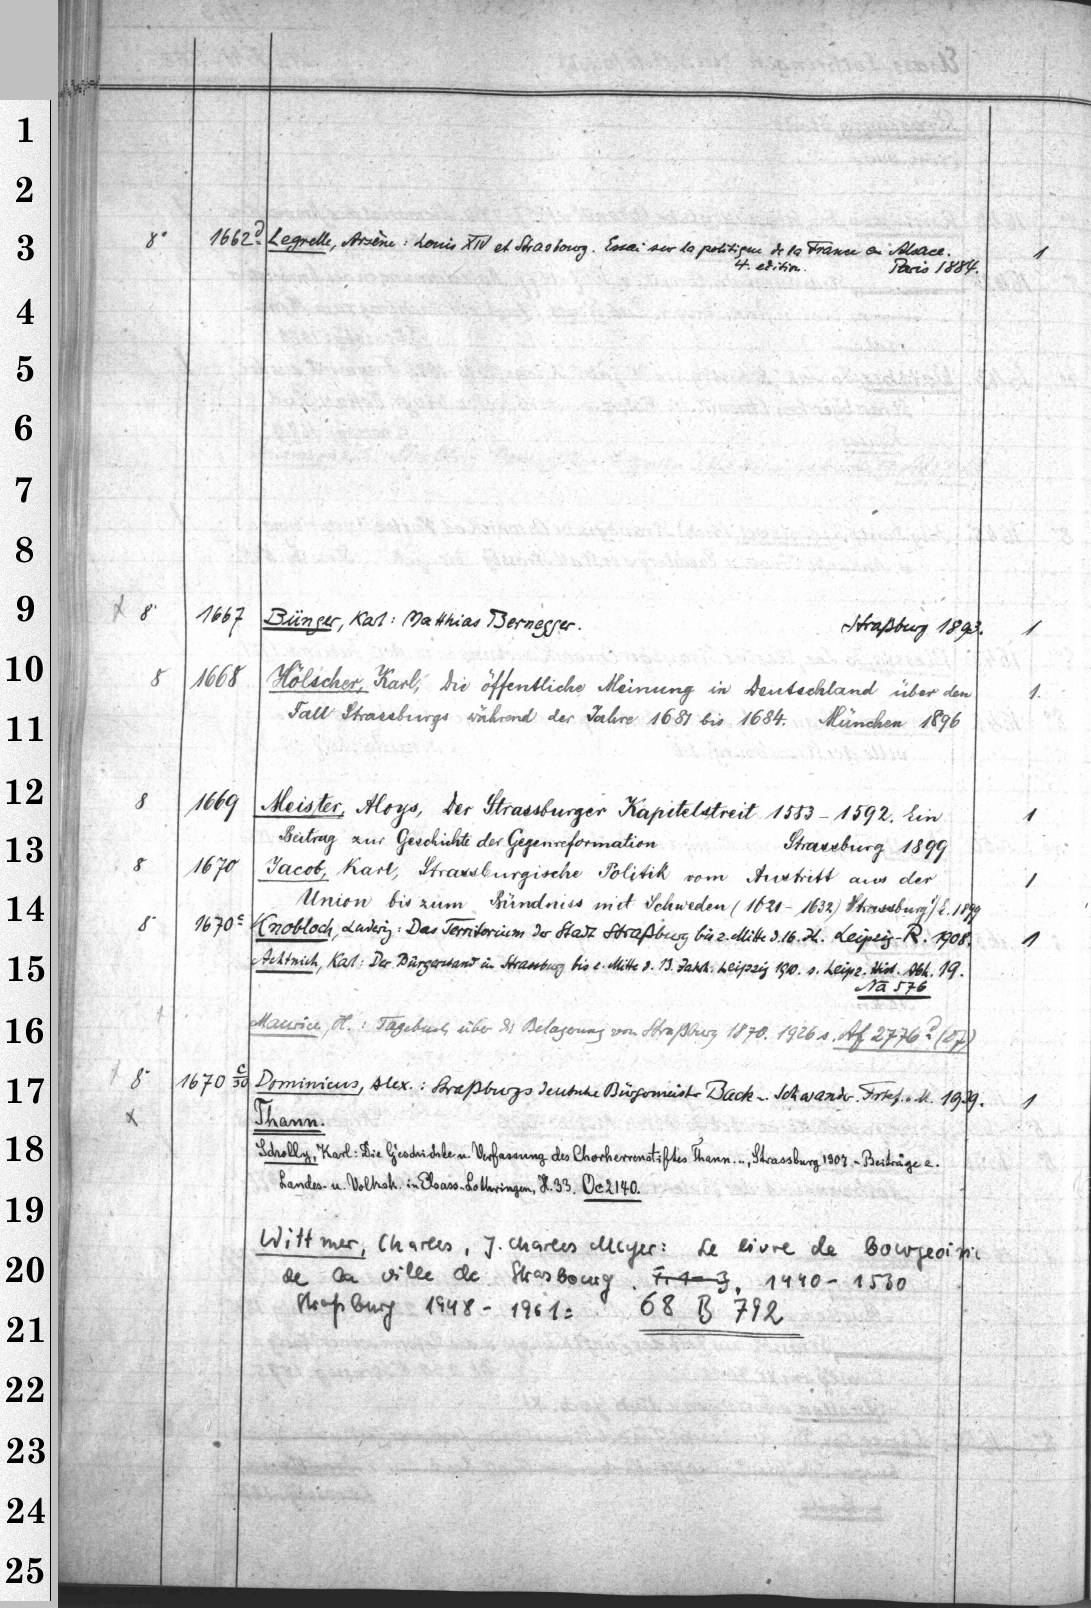 1
2
3
4
5
6
7
8
9
10
11
12
13
14
15
16
17
18
19
20
21
22
23
24
25
8° 1662d Legrelle, Arsène: Louis XIV et Strasbourg. Essai sur la politique de la France en Alsace. 1
4. edition. Paris 1884.
8° 1667 Bünger, Karl: Matthias Bernegger. Straßburg 1893. 1
8 1668 Hölscher, Karl, Die öffentliche Meinung in Deutschland über den 1.
Fall Strassburgs während der Jahre 1681 bis 1684. München 1896
8 1669 Meister, Aloys, Der Strassburger Kapitelstreit 1583-1592. Ein 1
Beitrag zur Geschichte der Gegenreformation Strassburg 1899
8 1670 Jacob, Karl, Strassburgische Politik vom Austritt aus der 1
Union bis zum Bündniss mit Schweden (1621-1632) Strassburg i/E. 1899
8° 1670c Knobloch, Ludwig: Das Territorium der Stadt Straßburg bis z. Mitte d. 16. Jh. Leipzig-R. 1908. 1
Achtnich, Karl: Der Bürgerstand in Strassburg bis z. Mitte d. 13. Jahrh. Leipzig 1910. s. Leipz. Hist. Abh. 19.
Na 576
Maurice, H.: Tagebuch über die Belagerung von Straßburg 1870. 1926 s. Af 2776
8° 1670 c/30 Dominicus, Alex.: Straßburgs deutsche Bürgermeister Back u. Schwander. Frkf. a. M. 1939. 1
Thann.
Scholly, Karl: Die Geschichte u. Verfassung des Chorherrenstiftes Thann..., Strassburg 1907 = Beiträge z.
Landes- u. Volksk. in Elsass-Lothringen, H. 33. Oc 2140.
Wittmer, Charles, J. Charles Meyer: Le livre de Bourgeoisie
de la ville de Strasbourg. 1440-1530
Straßburg 1948-1961: 68 B 792